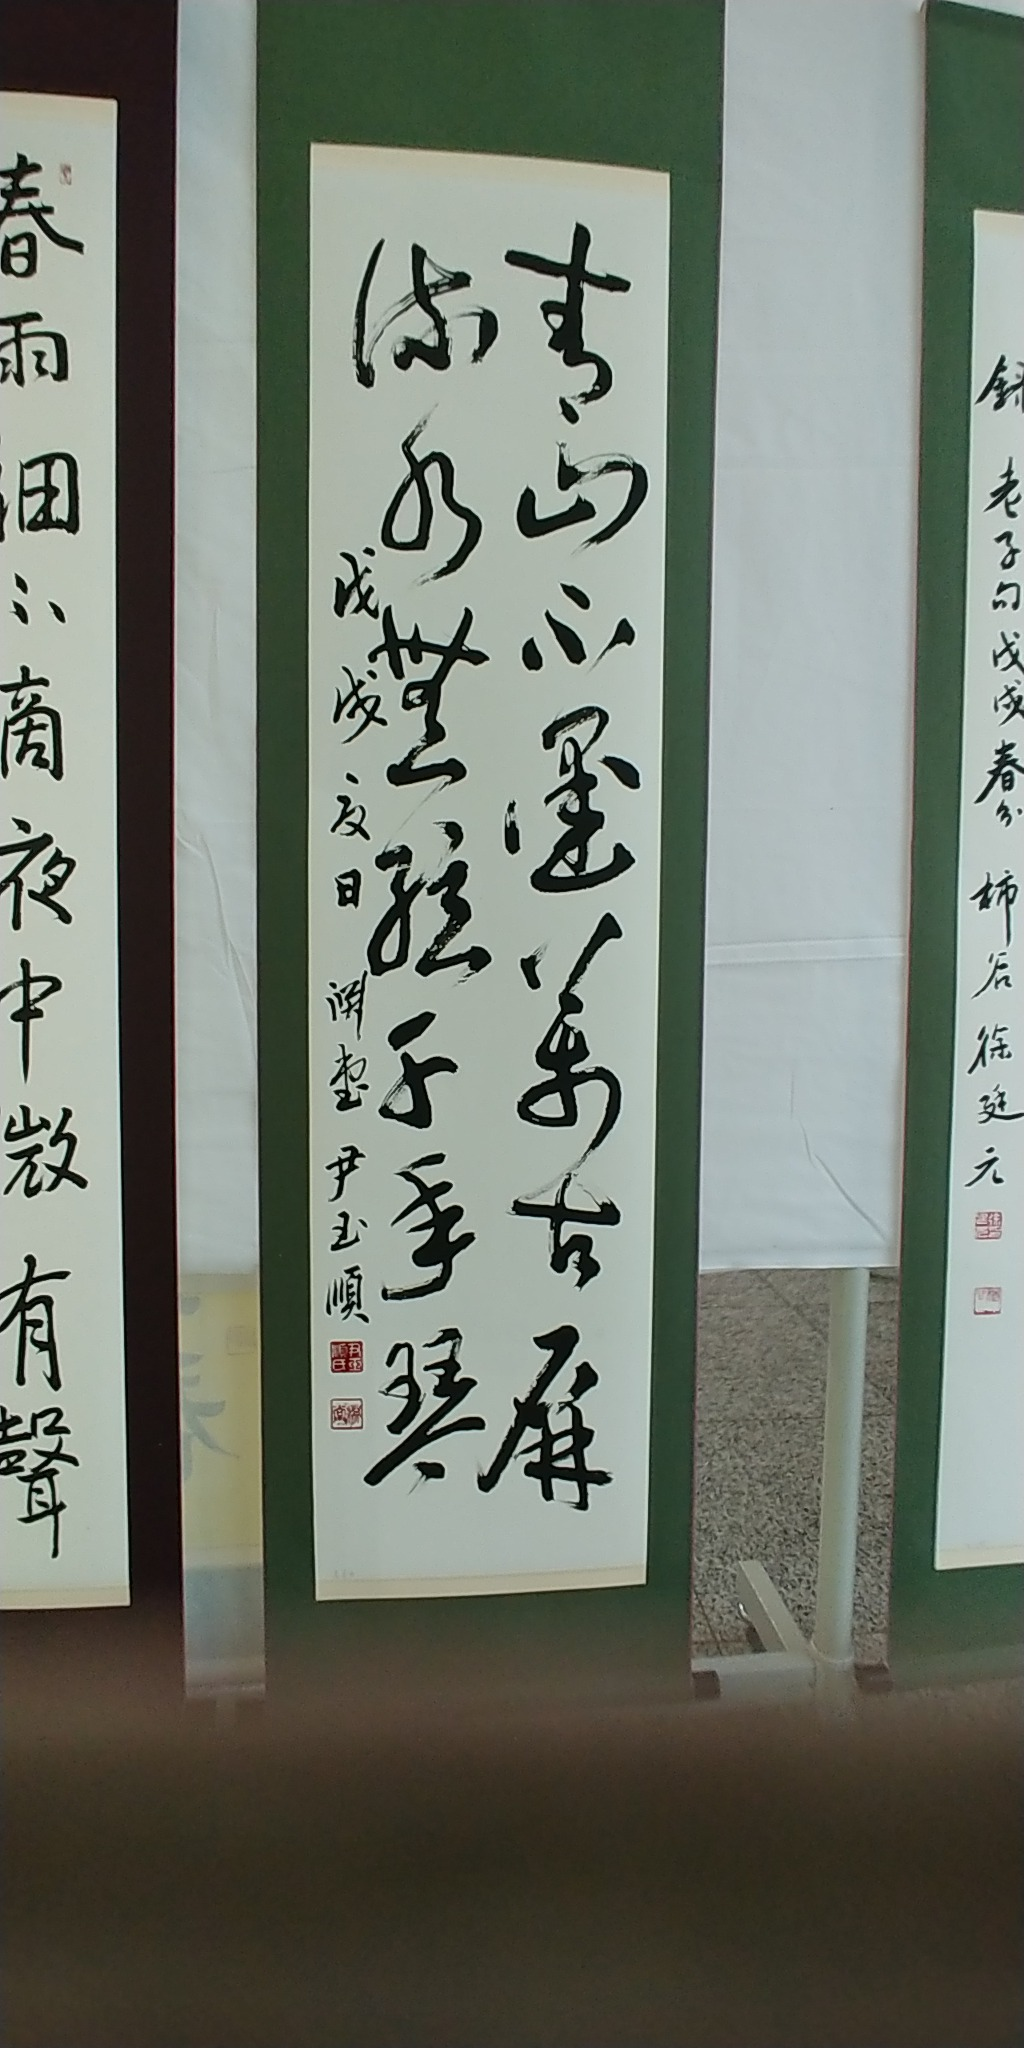 青山不墨萬古屏
流水無絃千年琴
戊戌夏日 尹玉順
春雨細不滴夜中微有聲
錄老子句戊戌春分 柿谷 徐廷元